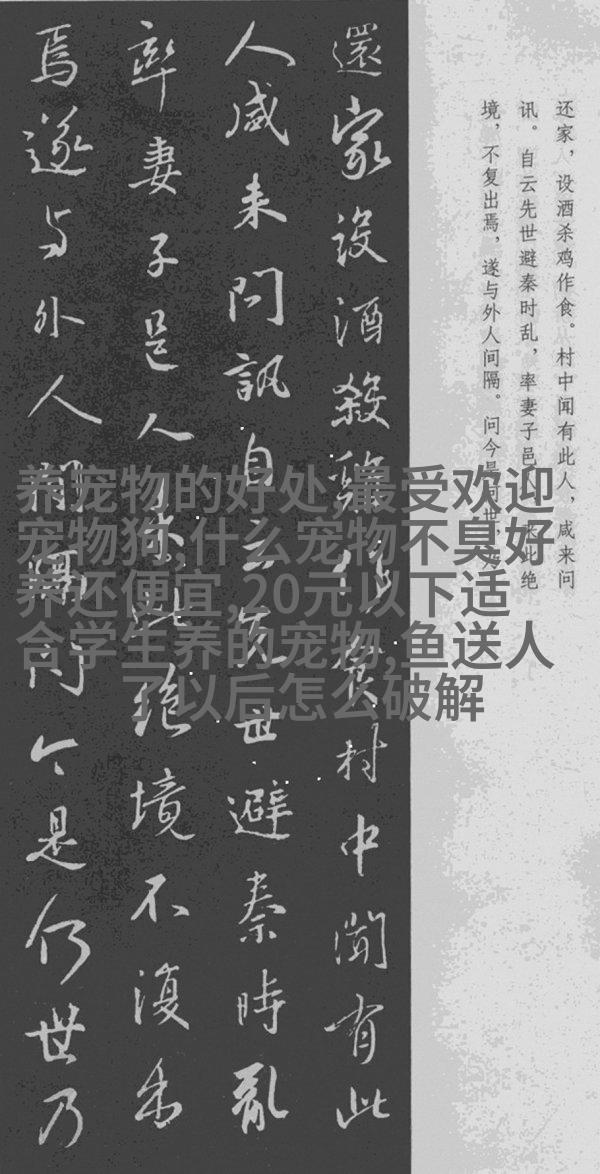 还家，设酒杀鸡作食。村中闻有此人，咸来问
讯。自云先世避秦时乱，率妻子邑人，来此绝
境，不复出焉，遂与外人间隔。问今是何世，乃
還家設酒殺雞作食村中聞有此
人咸来問訊自云先世避秦時亂
率妻子邑人来此绝境不復出
焉遂与外人間隔问今是何世乃
养宠物的好处,最受欢迎
宠物狗,什么宠物不臭好
养还便宜,20元以下适
合学生养的宠物,鱼送人
了以后怎么破解